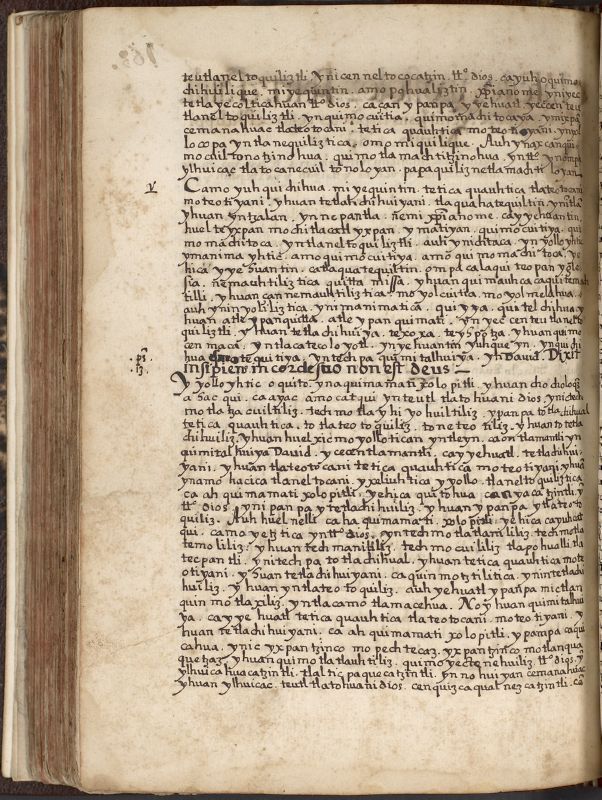 teutlaneltoquiliztli ynicenneltococatzin. tt.º dios. cayuh oquimo
chihuililique. miyequintin. amo pohualiztin. xp̃iano me yniyec
tetlayecolticahuan tt.º dios. cacan y panpa yyehuatl yeccen teu
tlaneltoquiliztli. yn quimocuitia. quimomachitocaya.
cemanahuac tlateotocani. tetica quauhtica moteotiyani.
locopa yntlanequiliztica. omomiquilique. Auh
mocuiltonotzinohua. quimotlamachtitzinohua. yntt.º
ylhuicac tlatocanecuiltonoloyan. papaquiliznetlamachtiloyan.
v Camo yuh quichihua. miyequintin. tetica quauhtica tlateotocani
moteotiyani. yhuan tetlachichihuiyani. tlaquahatequiltin.
yhuan yntzalan. yn nepantla. nemi xp̃iano me. cayyehuantin,
huel teyxpan mochitlacatl yxpan y matiyan. quimocuitiya. qui
momachitoca. yntlaneltoquiliztli. auh ynichtaca. ynyollo yhtic
ymanima yhtic. amo quimocuitiya. amo quimomachitoca. ye
hica yyehuantin. catlaquatequiltin. ompa calaqui teopan
sia. nemauhtiliztica quitta missa. yhuan quimauhcacaquitemach
tilli. yhuan cannemauhtiliztica. moyolcuitia. moyolmelahua.
auh ynin yoliliztica. ynimanimatica. quiyya. quitelchihua y
huan. atle ypan quitta. atle y pan quimati. ynyeccen teutlaneltoq̃
quiliztli. yhuan tetlachihuiya. texoxa. teypotza. yhuan quimo
cenmaca. yntlacatecoloyotl. yn yehuantin yuhque yn. ynquichi
.ps. hua teoteq̃uitiya. yntechpa quimitalhuiya. yh David. Dixit
.13. Insipiens in corde suo non est deus:—
Yyolloyhtic oquito. ynaquimamati xolopitli. yhuan chocholoq̃z
a Sac qui. caayac amo catqui ynteutl tlatohuani dios. ynictech
motlatzacuiltiliz. techmotlayhiyohuiltiliz. ypanpa totlachihual
tetica quauhtica. totlateotoquiliz. toneteotiliz. yhuan totetla
chihuiliz. yhuan huelxicmoyollotican yntleyn. caontlamantli yn
quimitalhuiya David. yceccentlamantli. cayyehuatl. tetlachihui
yani. yhuan tlateotocani tetica quauhtica moteotiyani yhuan
ynamo hacica tlaneltocani. yxaliuhtica yyollo. tlaneltoquiliztica
ca ah quimamati xolopitli. yehica quitohua canyaca tzintli y
tt.º dios. yni pan pa ytetlachihuiliz. yhuan ypanpa ytlateoto
quiliz. Auh huel nelli ca ha quimamati. xolopitli. yehica cayuhcat
qui. camo yetztica yntt.º dios. yntechmotlatlaniliz. techmotla
temoliliz. yhuan techmaniliz. techmocuililiz tlapohualli tla
tecpantli. ynitechpa totlachihual. yhuan tetica quauhtica mote
otiyani. yhuan tetlachihuiyani. ca quinmotzilitica. ynintetlachi
huiliz. yhuan yntlateotoquiliz. auh yehuatl ypanpa mictlan
quinmotlaxiliz. yntlacamo tlamacehua. No yhuan quimitalhui
ya. cayyehuatl tetica quauhtica tlateotocani. moteotiyani. y
huan tetlachihuiyani. ca ah quimamati xolopitli. y pampa caqui
cahua. ynic yxpantzinco mopechtecaz. yxpantzinco motlanqua
quetzaz. yhuan quimotlatlauhtiliz. quimoyectenehuiliz. tt.º dios. y
ylhuicahuacatzintli. tlalticpaquecatzintli. yn nohuiyan cemanahuac
yhuan ylhuicac. teutl tlatohuani dios. cenquizcaqualnezcatzintli. ca